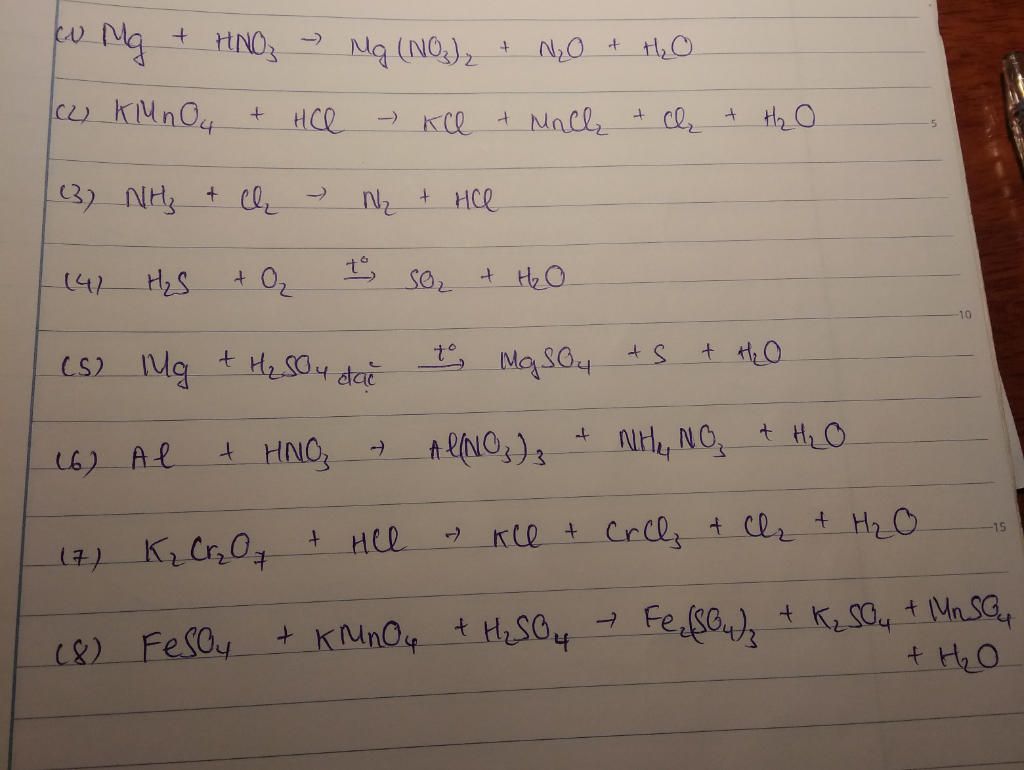 (1) Mg + HNO₃ → Mg(NO₃)₂ + N₂O + H₂O
(2) KMnO₄ + HCl → KCl + MnCl₂ + Cl₂ + H₂O
5
(3) NH₃ + Cl₂ → N₂ + HCl
(4) H₂S + O₂ t°→ SO₂ + H₂O
10
(5) Mg + H₂SO₄ đặc t°→ MgSO₄ + S + H₂O
(6) Al + HNO₃ → Al(NO₃)₃ + NH₄NO₃ + H₂O
(7) K₂Cr₂O₇ + HCl → KCl + CrCl₃ + Cl₂ + H₂O
15
(8) FeSO₄ + KMnO₄ + H₂SO₄ → Fe₂(SO₄)₃ + K₂SO₄ + MnSO₄
+ H₂O